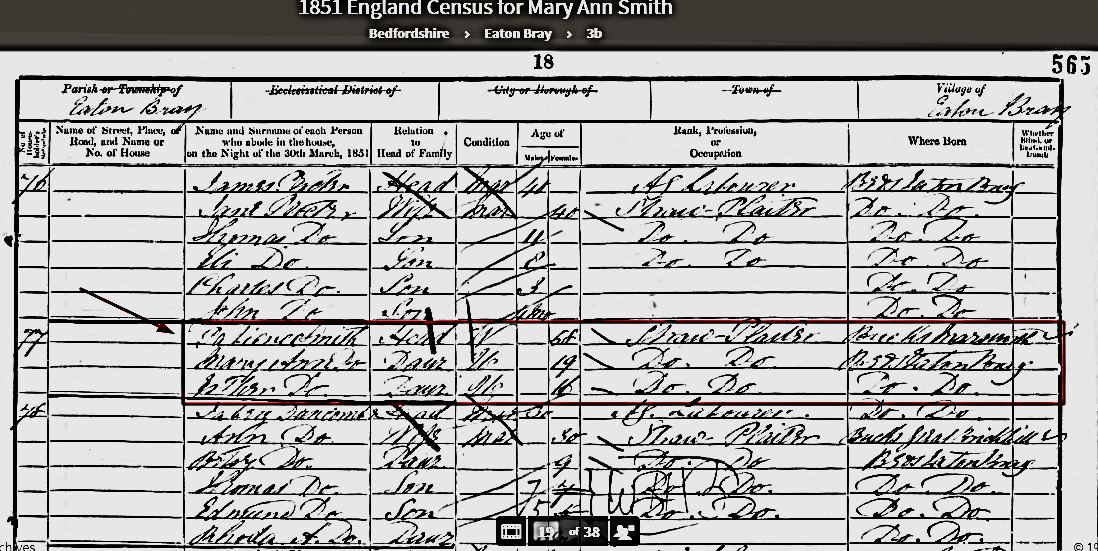 1851 England Census for Mary Ann Smith
Bedfordshire > Eaton Bray > 3b
18
565
Parish or Township of Ecclesiastical District of City or Borough of Town of Village of
Eaton Bray Eaton Bray
Name of Street, Place, or Road, and Name or No. of House
Name and Surname of each Person who abode in the house, on the Night of the 30th March, 1851
Relation to Head of Family
Condition
Age of
Males Females
Rank, Profession, or Occupation
Where Born
Whether Blind, or Deaf-and-Dumb
76 James Head Mar 40 Ag Labourer Beds Eaton Bray
Jane Wife Mar 40 Straw-Plaiter Do. Do.
Thomas Do Son 11 Do. Do Do. Do
Eli Do Son 8 Do. Do Do Do
Charles Do. Son 3 Do. Do
John Do Son Do. Do
77 Patience Smith Head W 58 Straw-Plaiter Bucks
Mary Ann Do Daur 19 Do. Do. Beds Eaton Bray
Esther Do Daur 16 Do. Do. Do. Do.
78 Duncombe Head Mar 30 Ag. Labourer. Do. Do
Ann Do Wife Mar 30 Straw-Plaiter Bucks
Betsy Do. Daur 9 Do. Do Beds Eaton Bray
Thomas Do. Son 7 Do. Do. Do Do.
Edmund Do. Son 5 Do. Do. Do. Do.
Rhoda A. Do. Daur Do. Do.
19 of 38
chives
© 19